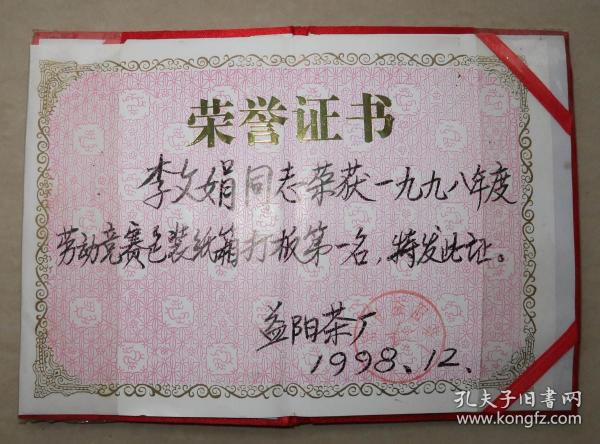 荣誉证书
李文娟同志荣获一九九八年度
劳动竞赛包装纸箱打板第一名,特发此证。
益阳茶厂
1998.12.
孔夫子旧书网
www.kongfz.com